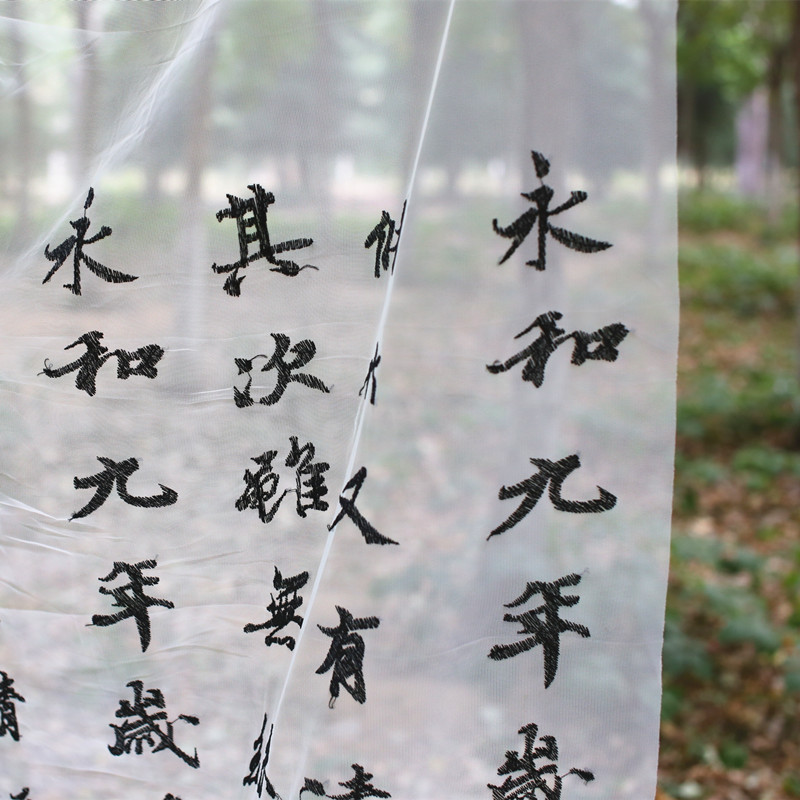 永和九年歲
又有
其次雖無
永和九年歲